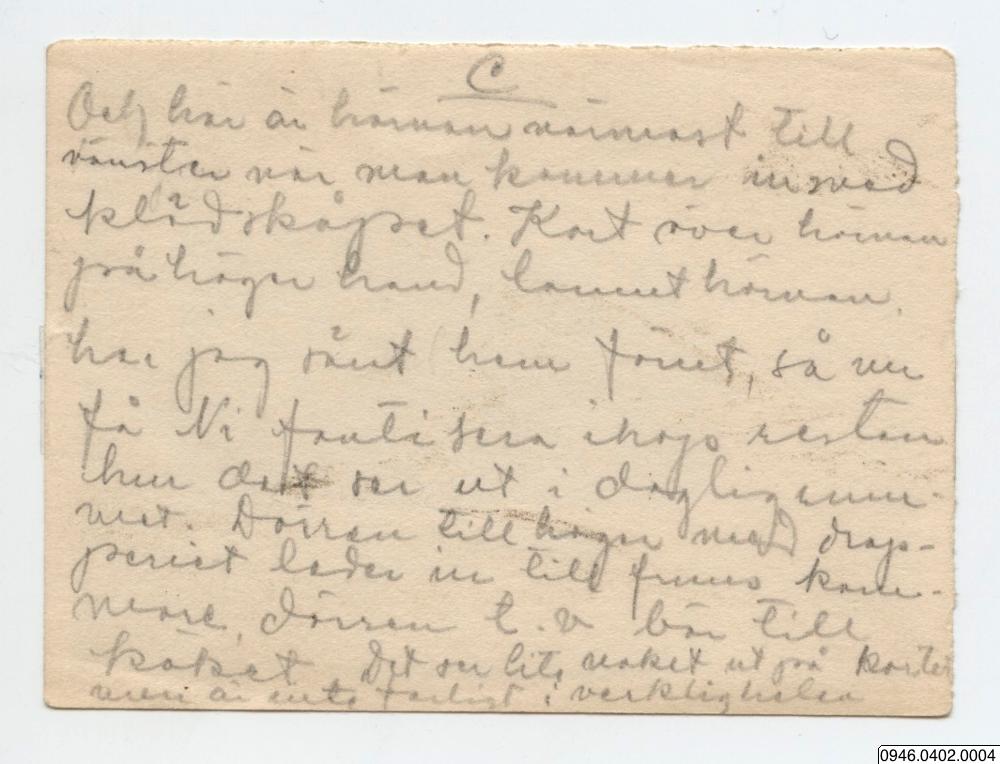 C
Och här är hörnan närmast till
vänster när man kommer in med
klädskåpet. Kort över hörnan
på höger hand, hörnan.
har jag sänt hem förut, så nu
få Ni fantisera ihop resten
hur det ser ut i dagligrum-
met. Dörren till höger med drap-
periet leder in till fruns kam-
mare, dörren t.v bär till
köket. Det ser lite naket ut på kortet
men är inte farligt i verkligheten
0946.0402.0004